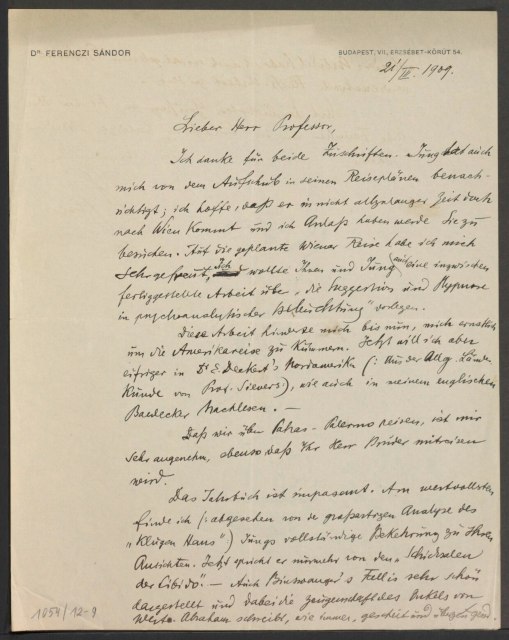 Dr. FERENCZI SÁNDOR
BUDAPEST, VII., ERZSÉBET-KÖRÚT 54.
21/III. 1909.
Lieber Herr Professor,
Ich danke für beide Zuschriften. Jung hat auch
mich von dem Aufschub in seinen Reiseplänen benach-
richtigt; ich hoffe, daß er in nicht allzulanger Zeit doch
nach Wien kommt und ich Anlaß haben werde Sie zu
besuchen. Auf die geplante Wiener Reise habe ich mich
sehr gefreut, Ich wollte Ihnen und Jung eine inzwischen
fertiggestellte Arbeit über „die Suggestion und Hypnose
in psychoanalytischer Beleuchtung" vorlegen.
Diese Arbeit hinderte mich bis nun, mich ernstlich
um die Amerikareise zu kümmern. Jetzt will ich aber
eifriger in Dr E. Deckert's Nordamerika (: Aus der Allg. Länder-
kunde von Prof. Sievers), wie auch in meinem englischen
Baedecker nachlesen. —
Daß wir über Patras - Palermo reisen, ist mir
sehr angenehm, ebenso daß Ihr Herr Bruder mitreisen
wird.
Das Jahrbuch ist imposant. Am wertvollsten
finde ich (: abgesehen von der großartigen Analyse des
„Klugen Hans":) Jungs vollständige Bekehrung zu Ihren
Ansichten. Jetzt spricht er nunmehr von den „Schicksalen
der Libido". — Auch Binswanger's Fall ist sehr schön
dargestellt und dabei die Zeugenschaft des Onkels von
Werte. Abraham schreibt, wie immer, gescheit und
1054/12-9